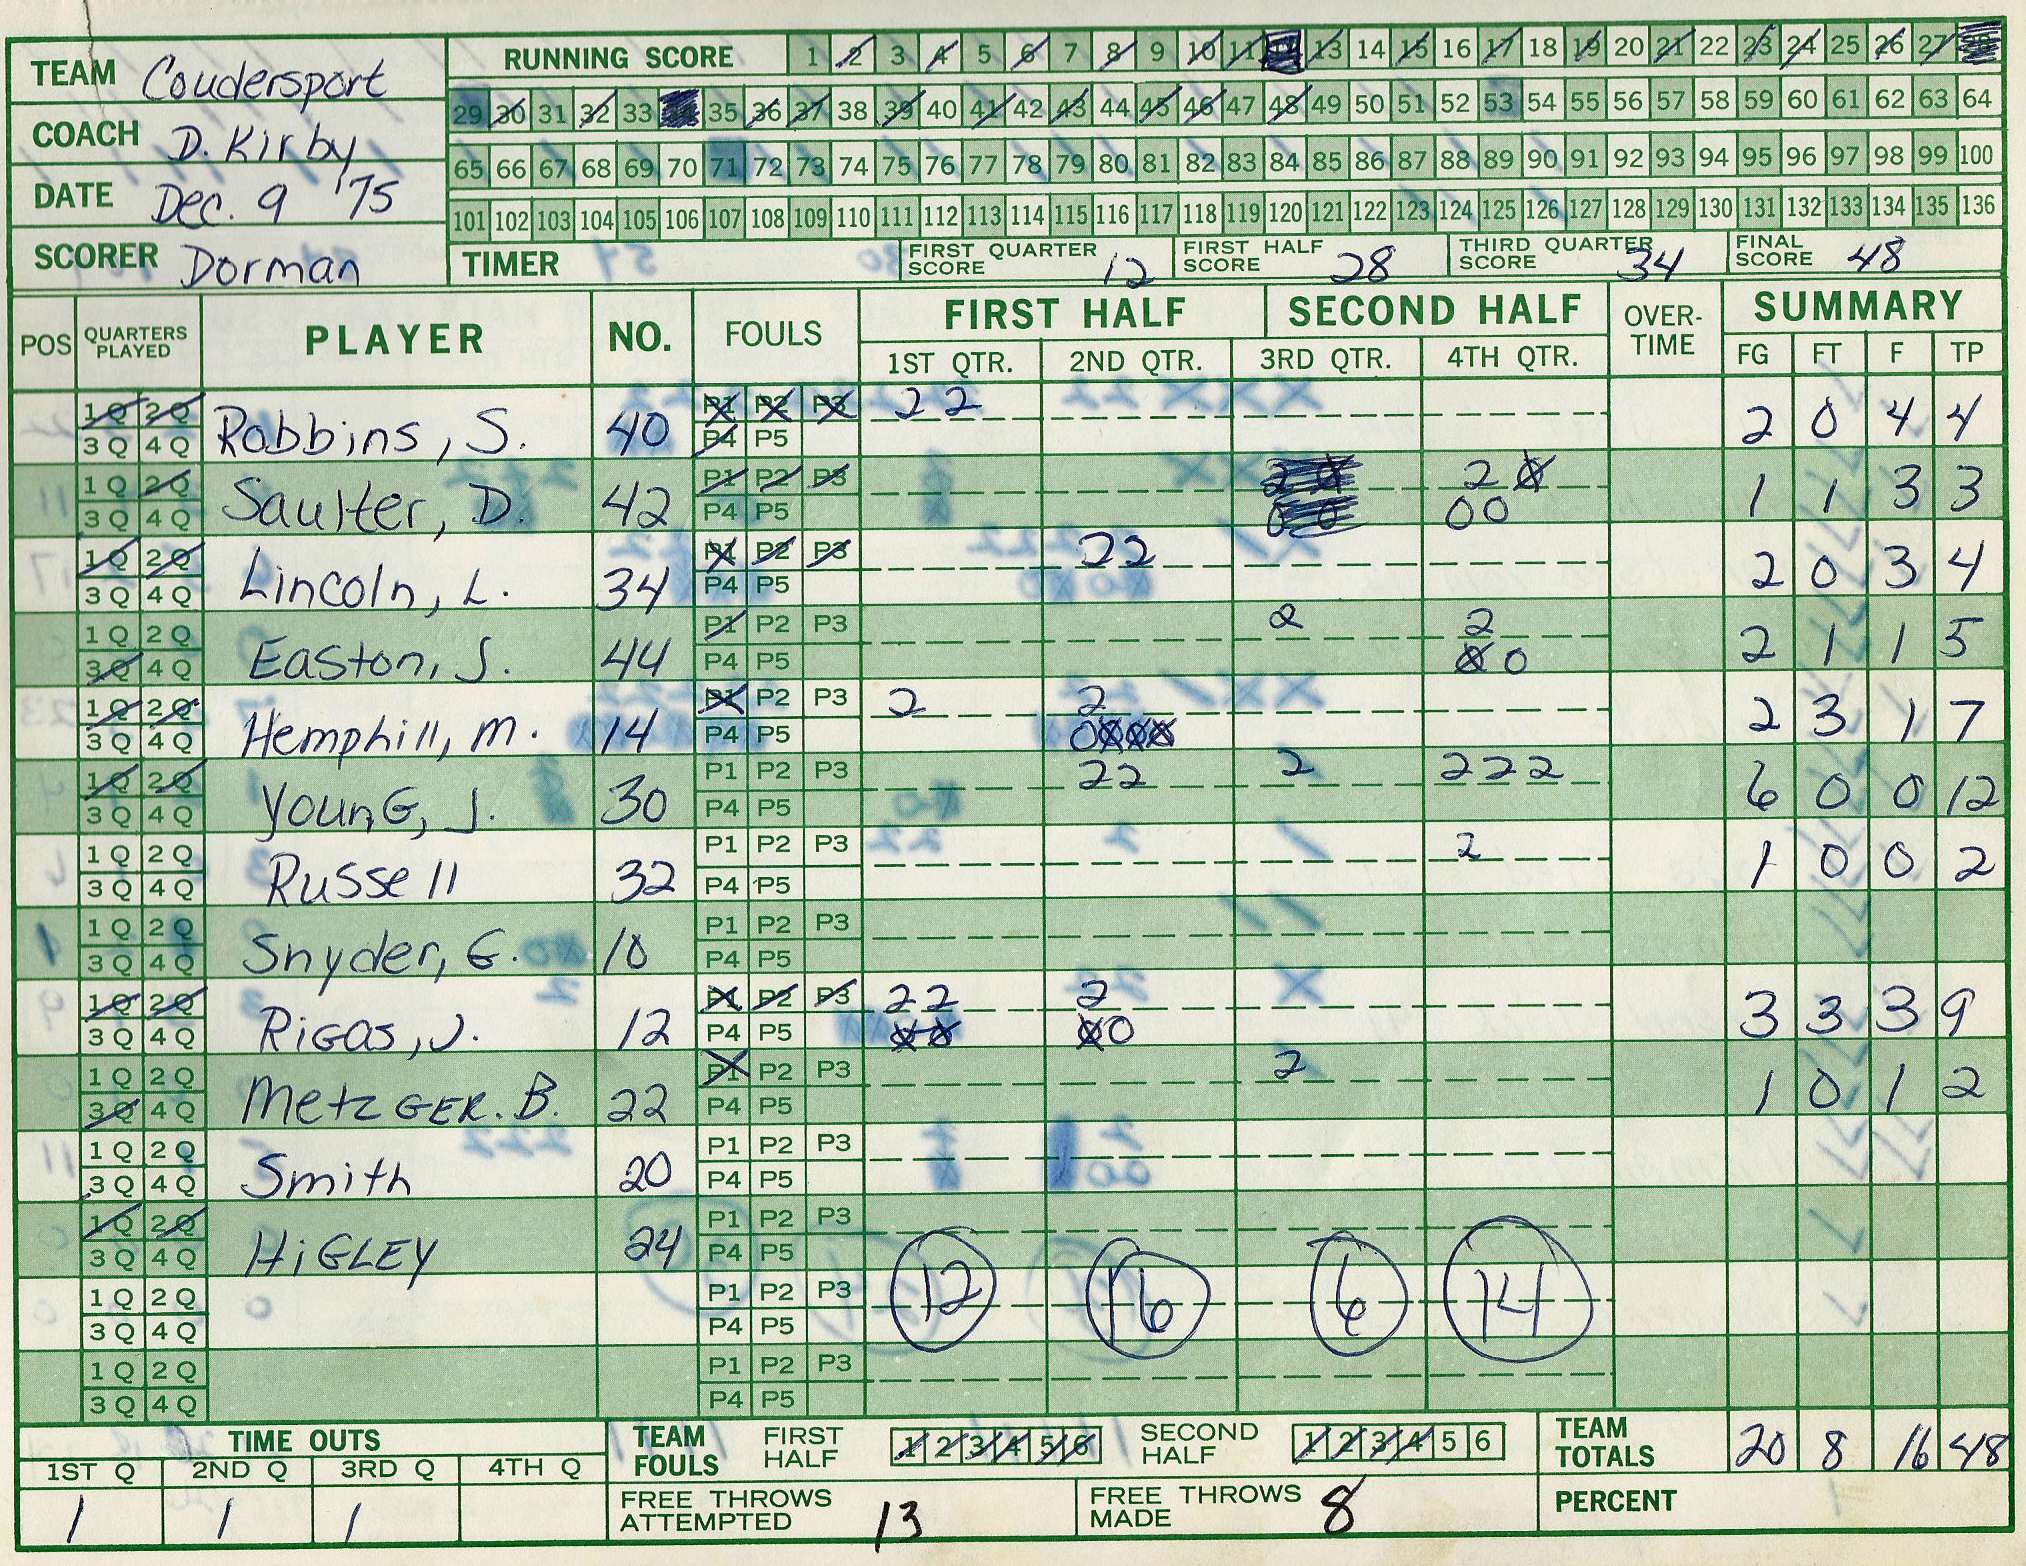 TEAM Coudersport
COACH D. Kirby
DATE Dec. 9 '75
SCORER Dorman
RUNNING SCORE 1 2 3 4 5 6 7 8 9 10 11 12 13 14 15 16 17 18 19 20 21 22 23 24 25 26 27 28
29 30 31 32 33 34 35 36 37 38 39 40 41 42 43 44 45 46 47 48 49 50 51 52 53 54 55 56 57 58 59 60 61 62 63 64
65 66 67 68 69 70 71 72 73 74 75 76 77 78 79 80 81 82 83 84 85 86 87 88 89 90 91 92 93 94 95 96 97 98 99 100
101 102 103 104 105 106 107 108 109 110 111 112 113 114 115 116 117 118 119 120 121 122 123 124 125 126 127 128 129 130 131 132 133 134 135 136
TIMER FIRST QUARTER SCORE 12 FIRST HALF SCORE 28 THIRD QUARTER SCORE 34 FINAL SCORE 48
POS QUARTERS PLAYED PLAYER NO. FOULS FIRST HALF SECOND HALF OVER-TIME SUMMARY
1ST QTR. 2ND QTR. 3RD QTR. 4TH QTR. FG FT F TP
1Q 2Q P1 P2 P3 2 2
3Q 4Q Robbins, S. 40 P4 P5 2 0 4 4
1Q 2Q P1 P2 P3 2 0 2 0
3Q 4Q Saulter, D. 42 P4 P5 0 0 0 0 1 1 3 3
1Q 2Q P1 P2 P3 2 2
3Q 4Q Lincoln, L. 34 P4 P5 2 0 3 4
1Q 2Q P1 P2 P3 2 2
3Q 4Q Easton, J. 44 P4 P5 0 0 2 1 1 5
1Q 2Q P1 P2 P3 2 2
3Q 4Q Hemphill, M. 14 P4 P5 0 0 0 0 2 3 1 7
1Q 2Q P1 P2 P3 2 2 2 2 2 2
3Q 4Q YounG, J. 30 P4 P5 6 0 0 12
1Q 2Q P1 P2 P3 2
3Q 4Q Russell 32 P4 P5 1 0 0 2
1Q 2Q P1 P2 P3
3Q 4Q Snyder, G. 10 P4 P5
1Q 2Q P1 P2 P3 2 2 2
3Q 4Q RiGas, J. 12 P4 P5 0 0 0 0 3 3 3 9
1Q 2Q P1 P2 P3 2
3Q 4Q MetzGER. B. 22 P4 P5 1 0 1 2
1Q 2Q P1 P2 P3
3Q 4Q Smith 20 P4 P5
1Q 2Q P1 P2 P3
3Q 4Q HiGLEY 24 P4 P5
1Q 2Q P1 P2 P3 12 16 6 14
3Q 4Q P4 P5
1Q 2Q P1 P2 P3
3Q 4Q P4 P5
TIME OUTS TEAM FOULS FIRST HALF 1 2 3 4 5 6 SECOND HALF 1 2 3 4 5 6 TEAM TOTALS 20 8 16 48
1ST Q 2ND Q 3RD Q 4TH Q
1 1 1 FREE THROWS ATTEMPTED 13 FREE THROWS MADE 8 PERCENT